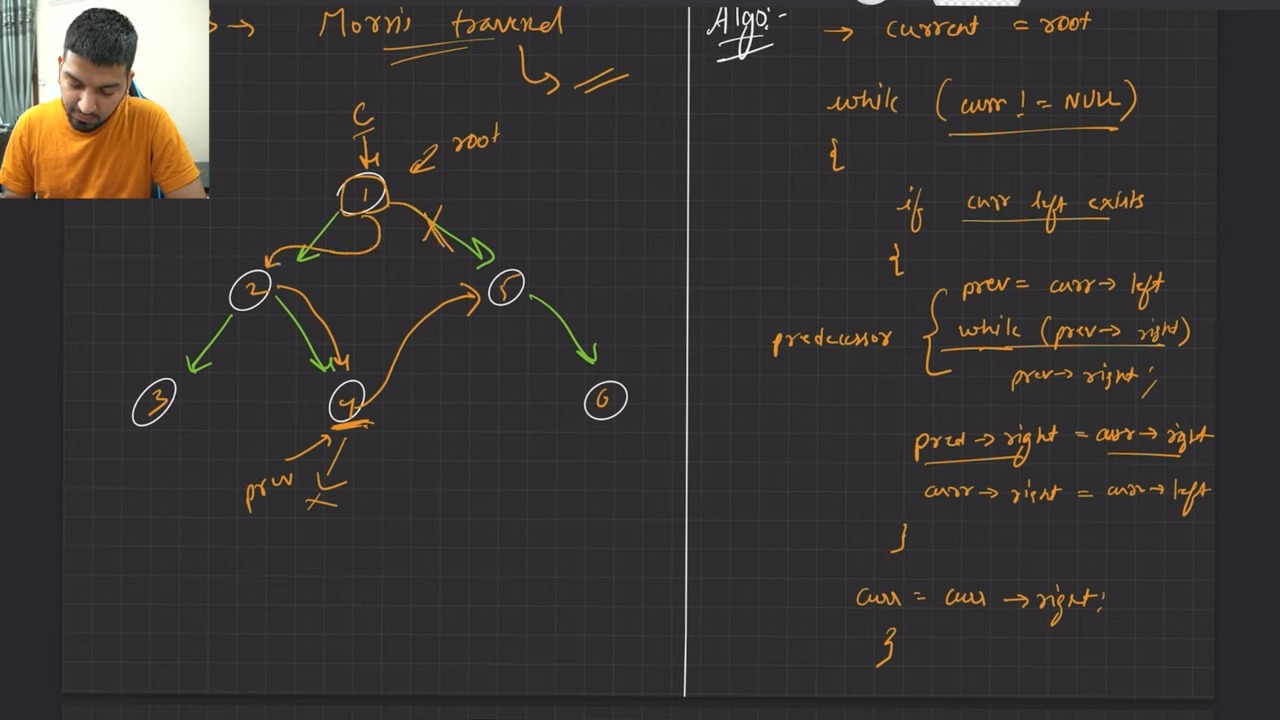 → Morris traversal
C
root
1
2
5
3
4
6
prev
Algo:-
→ current = root
while (curr != NULL)
{
if curr left exists
{
prev = curr → left
predecessor
while (prev → right)
prev → right;
pred → right = curr → right
curr → right = curr → left
}
curr = curr → right;
}